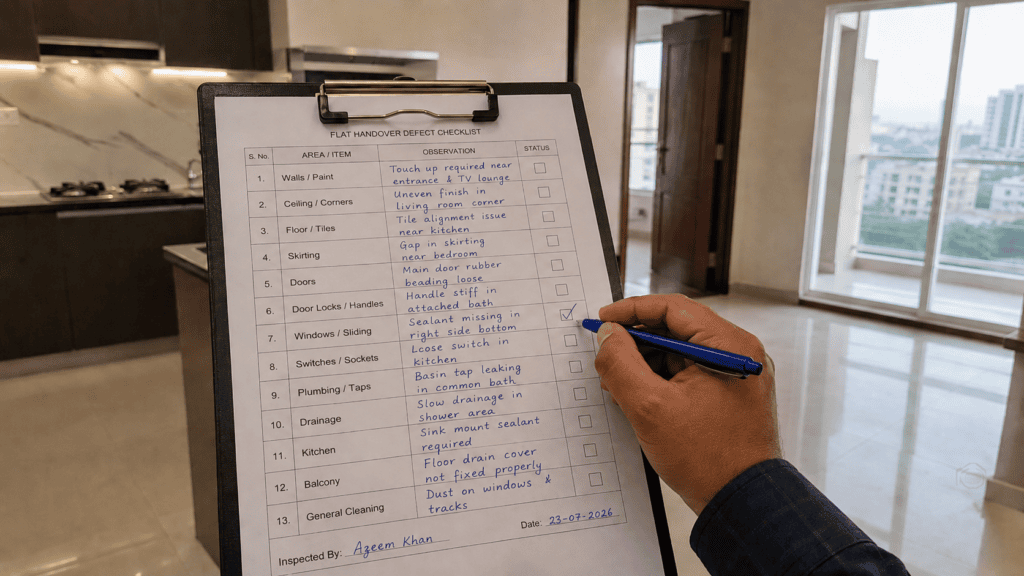 FLAT HANDOVER DEFECT CHECKLIST
S. No. AREA / ITEM OBSERVATION STATUS
1. Walls / Paint Touch up required near
entrance & TV lounge
2. Ceiling / Corners Uneven finish in
living room corner
3. Floor / Tiles Tile alignment issue
near kitchen
4. Skirting Gap in skirting
near bedroom
5. Doors Main door rubber
beading loose
6. Door Locks / Handles Handle stiff in
attached bath
7. Windows / Sliding Sealant missing in
right side bottom
8. Switches / Sockets Loose switch in
kitchen
9. Plumbing / Taps Basin tap leaking
in common bath
10. Drainage Slow drainage in
shower area
11. Kitchen Sink mount sealant
required
12. Balcony Floor drain cover
not fixed properly
13. General Cleaning Dust on windows &
tracks
Inspected By: Azeem Khan Date: 23-07-2026